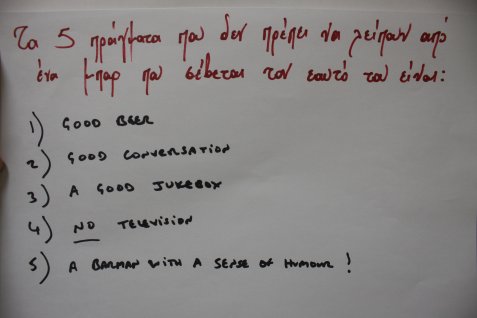 Τα 5 πράγματα που δεν πρέπει να λείπουν από
ένα μπαρ που σέβεται τον εαυτό του είναι:
1) GOOD BEER
2) GOOD CONVERSATION
3) A GOOD JUKEBOX
4) NO TELEVISION
5) A BARMAN WITH A SENSE OF HUMOUR!